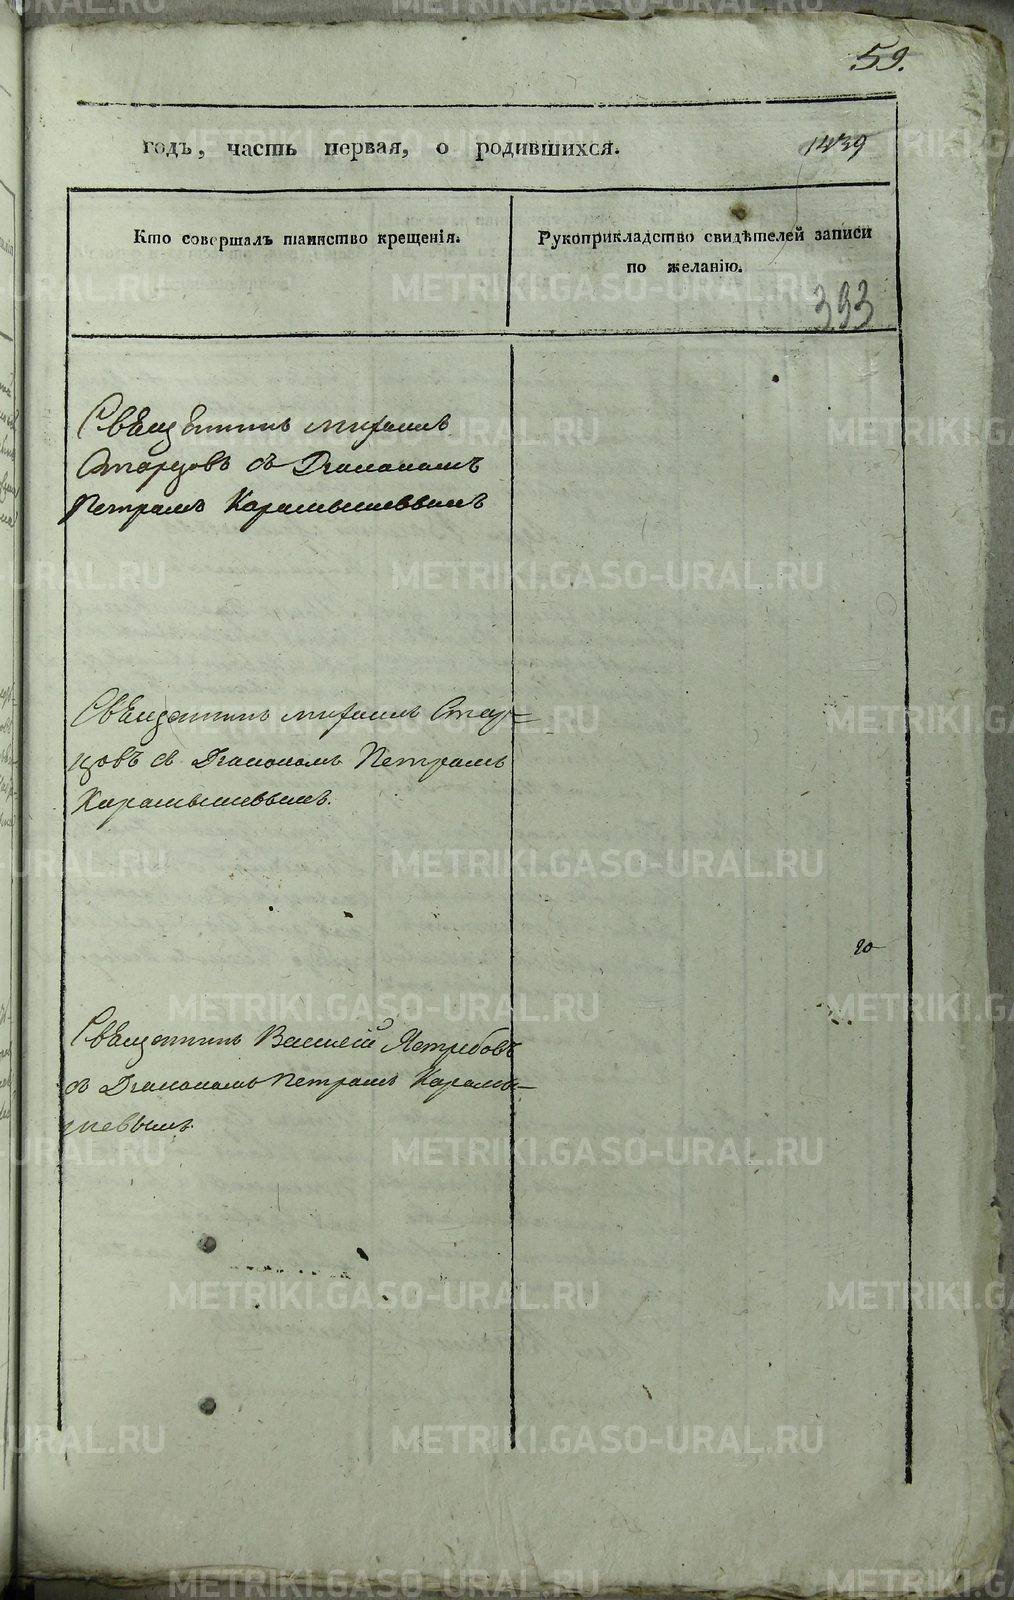 59.
годъ, часть первая, о родившихся.
1439
Кто совершалъ таинство крещенія.
Рукоприкладство свидѣтелей записи
по желанію.
393
Свѣщенникъ михаилъ
Старцовъ съ Диакономъ
Петромъ Карамышевымъ
Свѣщенникъ михаилъ Стар=
цовъ св Диакономъ Петромъ
Карамышевымъ.
20
Свѣщенникъ Василей Ястребовъ
съ Диакономъ Петромъ Карамы=
шевымъ.
METRIKI.GASO-URAL.RU